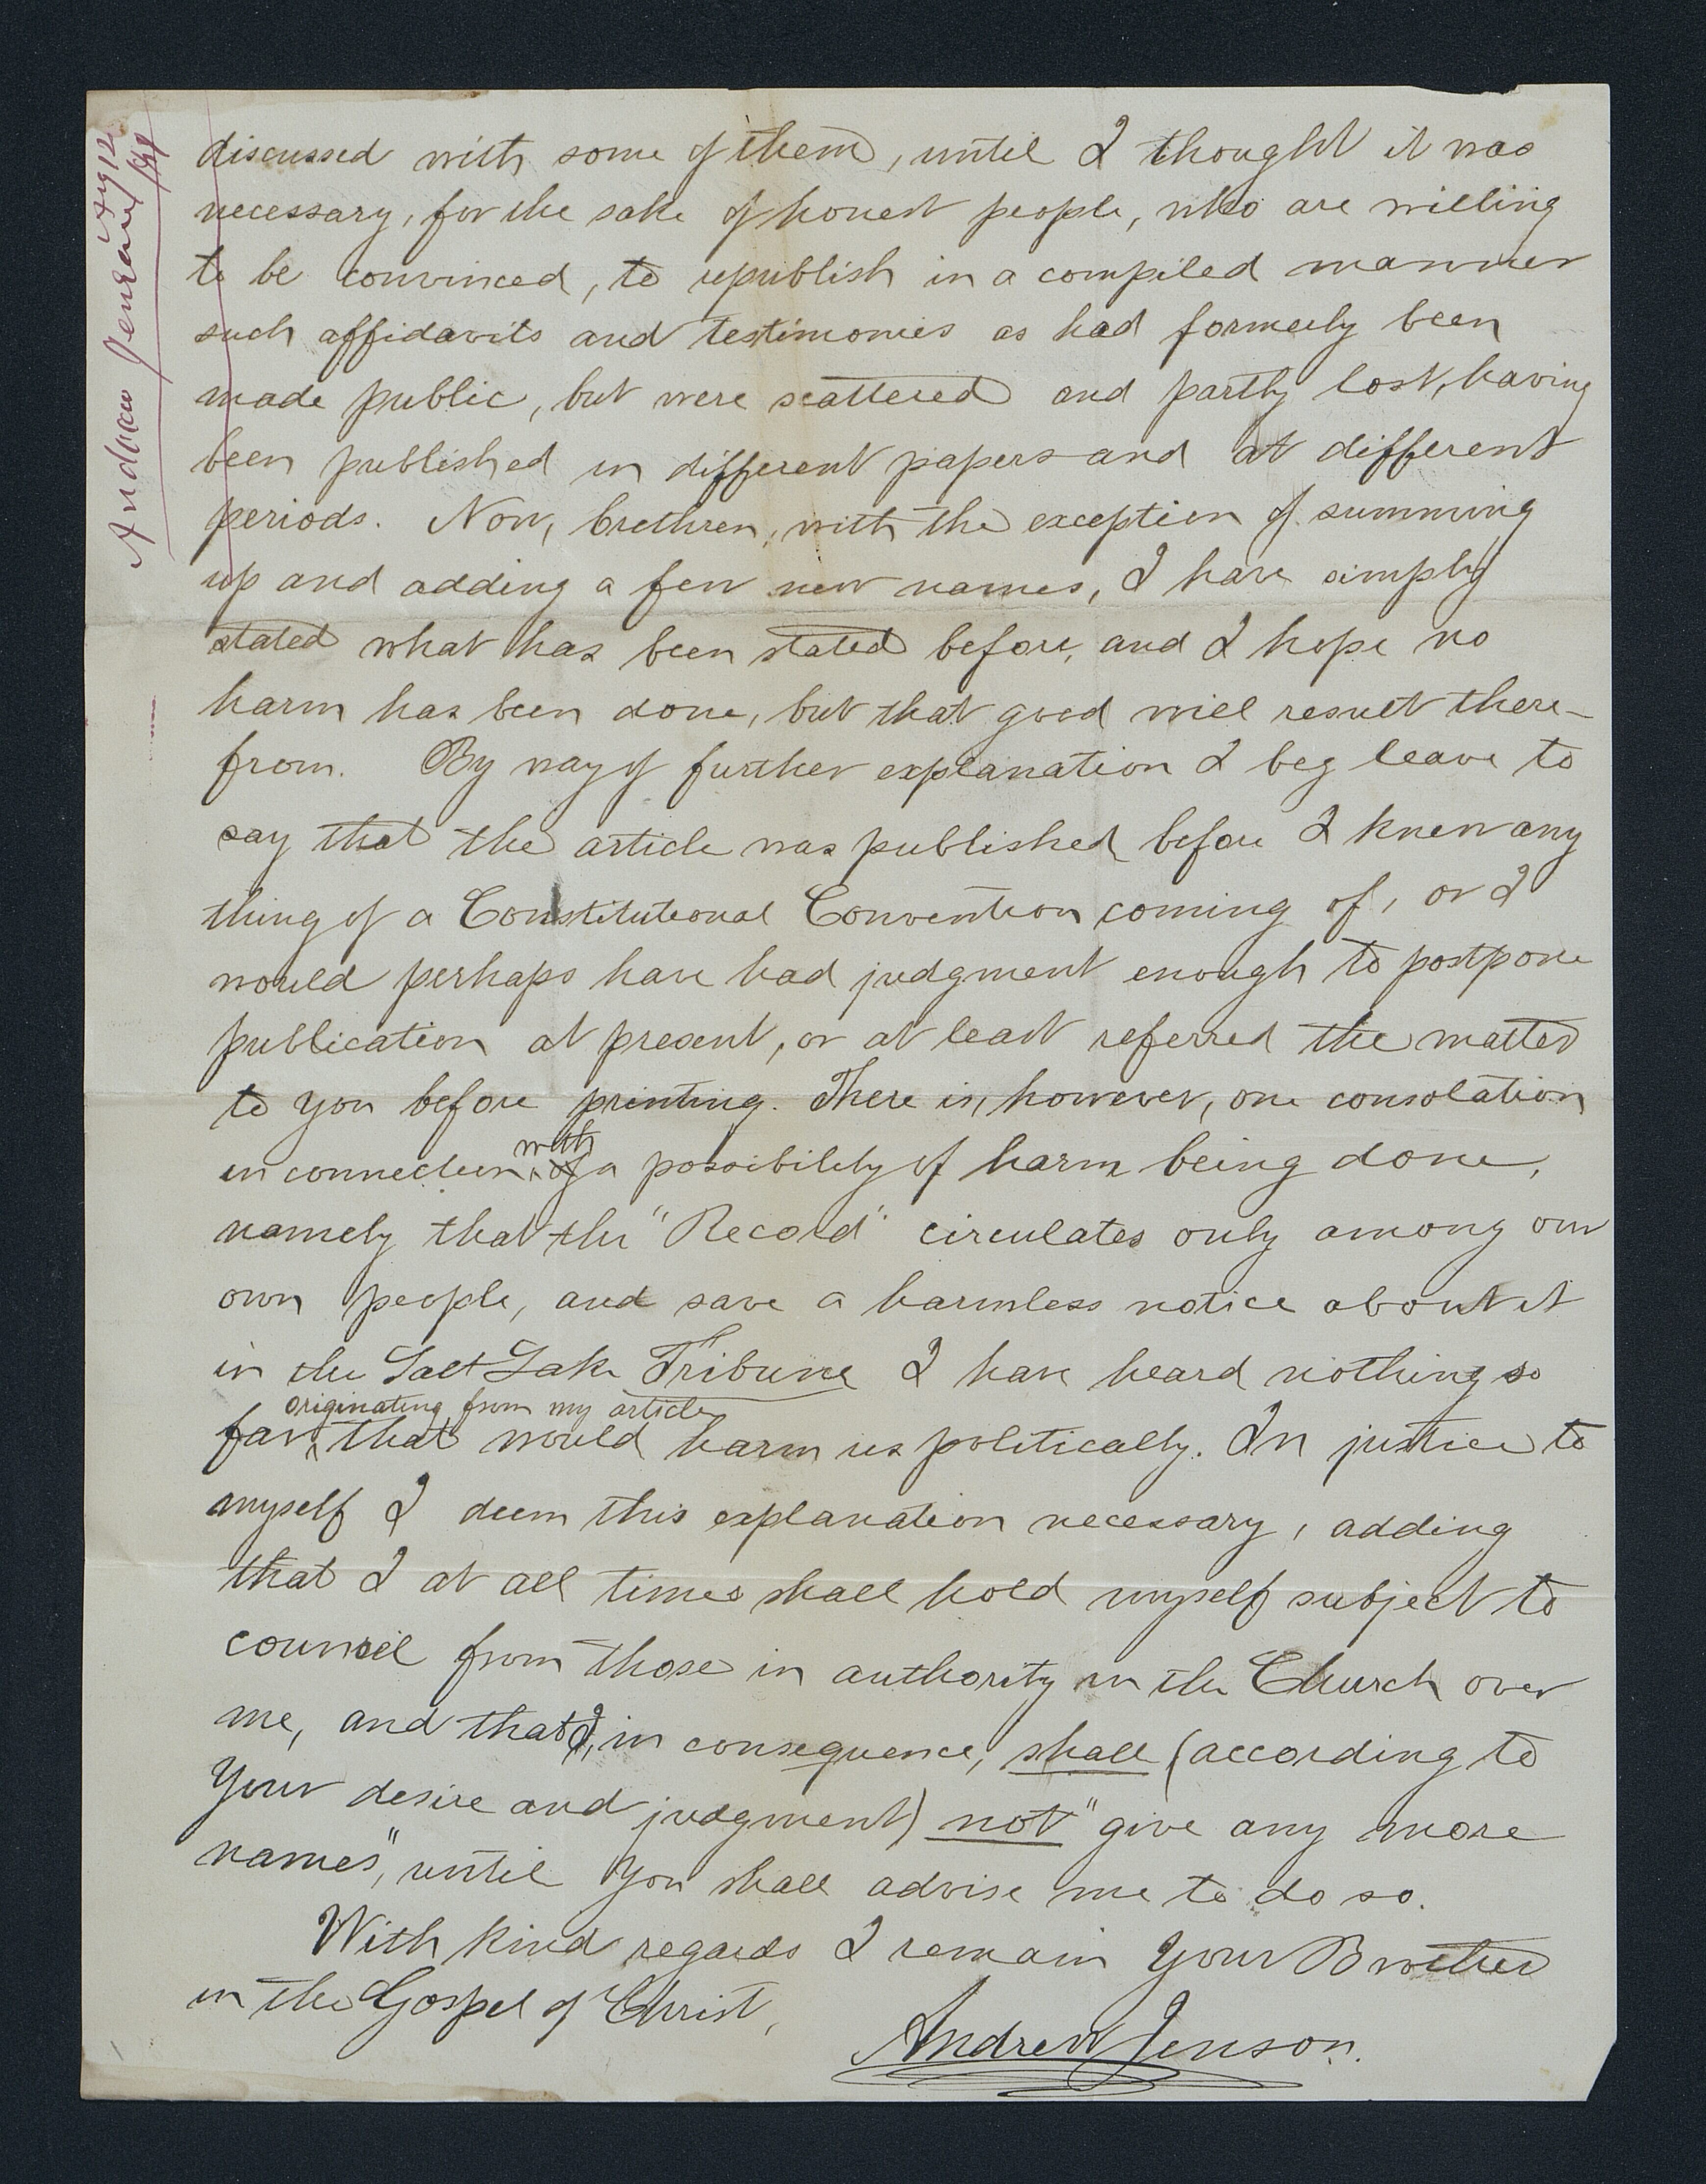 discussed with some of them, until I thought it was
necessary, for the sake of honest people, who are willing
to be convinced, to republish in a compiled manner
such affidavits and testimonies as had formerly been
made public, but were scattered and partly lost, having
been published in different papers and at different
periods. Now, brethren, with the exception of summing
up and adding a few new names, I have simply
stated what has been stated before, and I hope no
harm has been done, but that good will result there-
from. By way of further explanation I beg leave to
say that the article was published before I knew any
thing of a Constitutional Convention coming of, or I
would perhaps have had judgment enough to postpone
publication at present, or at least referred the matter
to you before printing. There is, however, one consolation
in connection with of a possibility of harm being done,
namely that the "Record" circulates only among our
own people, and save a harmless notice about it
in the Salt Lake Tribune I have heard nothing so
far originating from my article that would harm us politically. In justice to
myself I deem this explanation necessary, adding
that I at all times shall hold myself subject to
council from those in authority in the Church over
me, and that I, in consequence, shall (according to
Your desire and judgment) not "give any more
names", until You shall advise me to do so.
With kind regards I remain Your Brother
in the Gospel of Christ,
Andrew Jenson.
Andrew Jenson